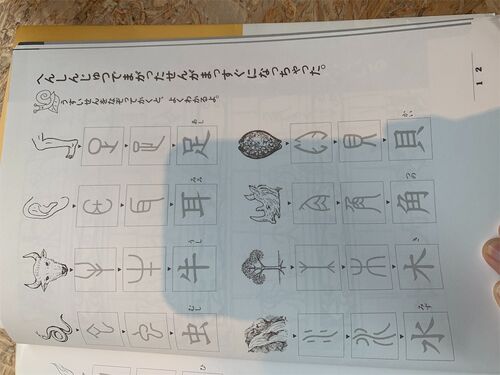 へんしんじゅつでまがったせんがまっすぐになっちゃった。
うすいせんをなぞってかくと、よくわかるよ。
あし
足
みみ
耳
うし
牛
むし
虫
かい
貝
つの
角
き
木
みず
水
ひ
12